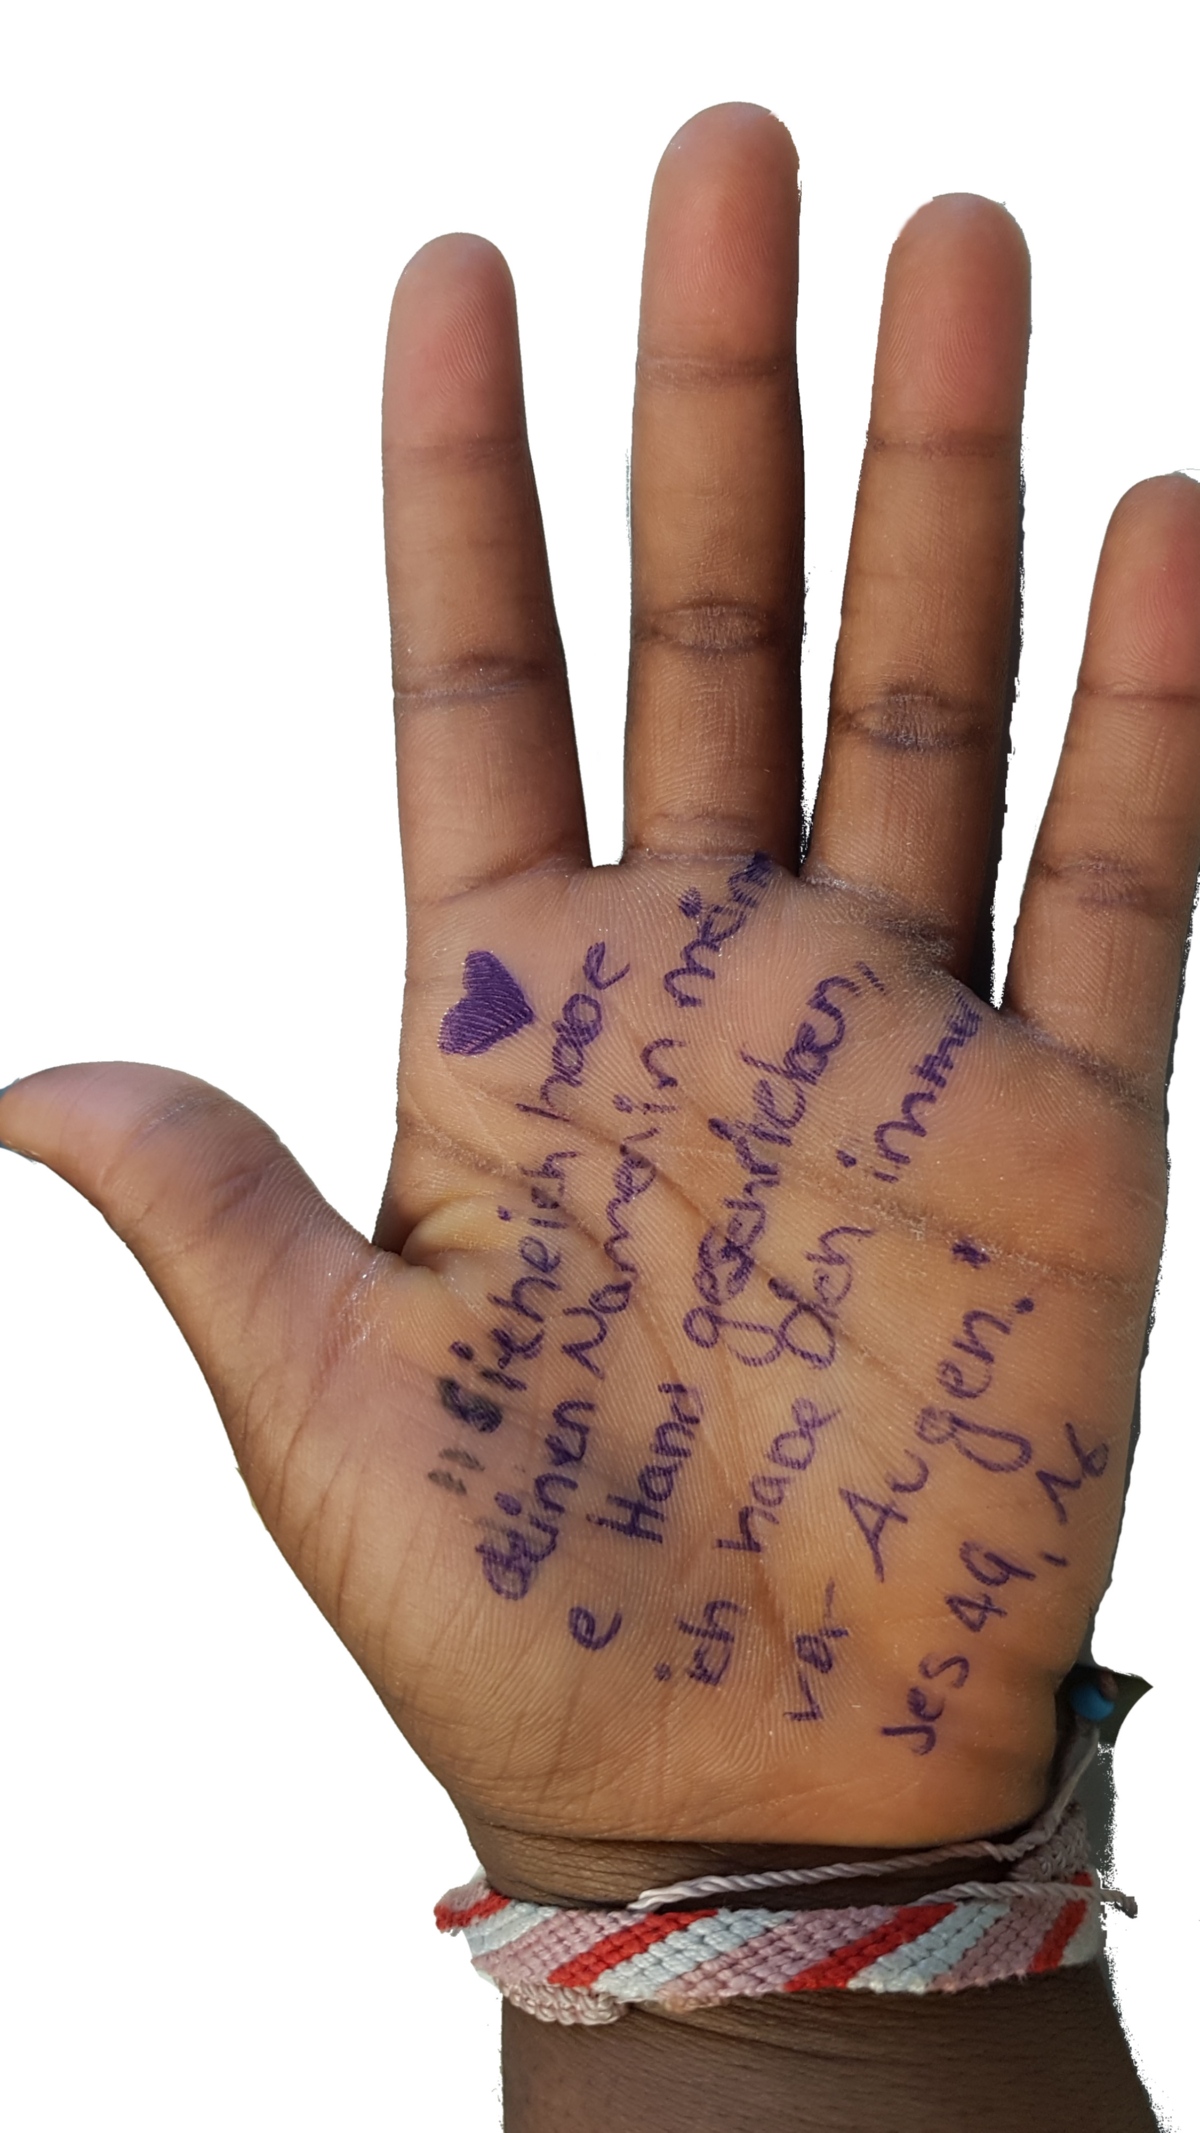 "Siehe ich habe
deinen Namen in mein
e Hand geschrieben"
ich habe dich immer
vor Augen.
Jes 49, 16